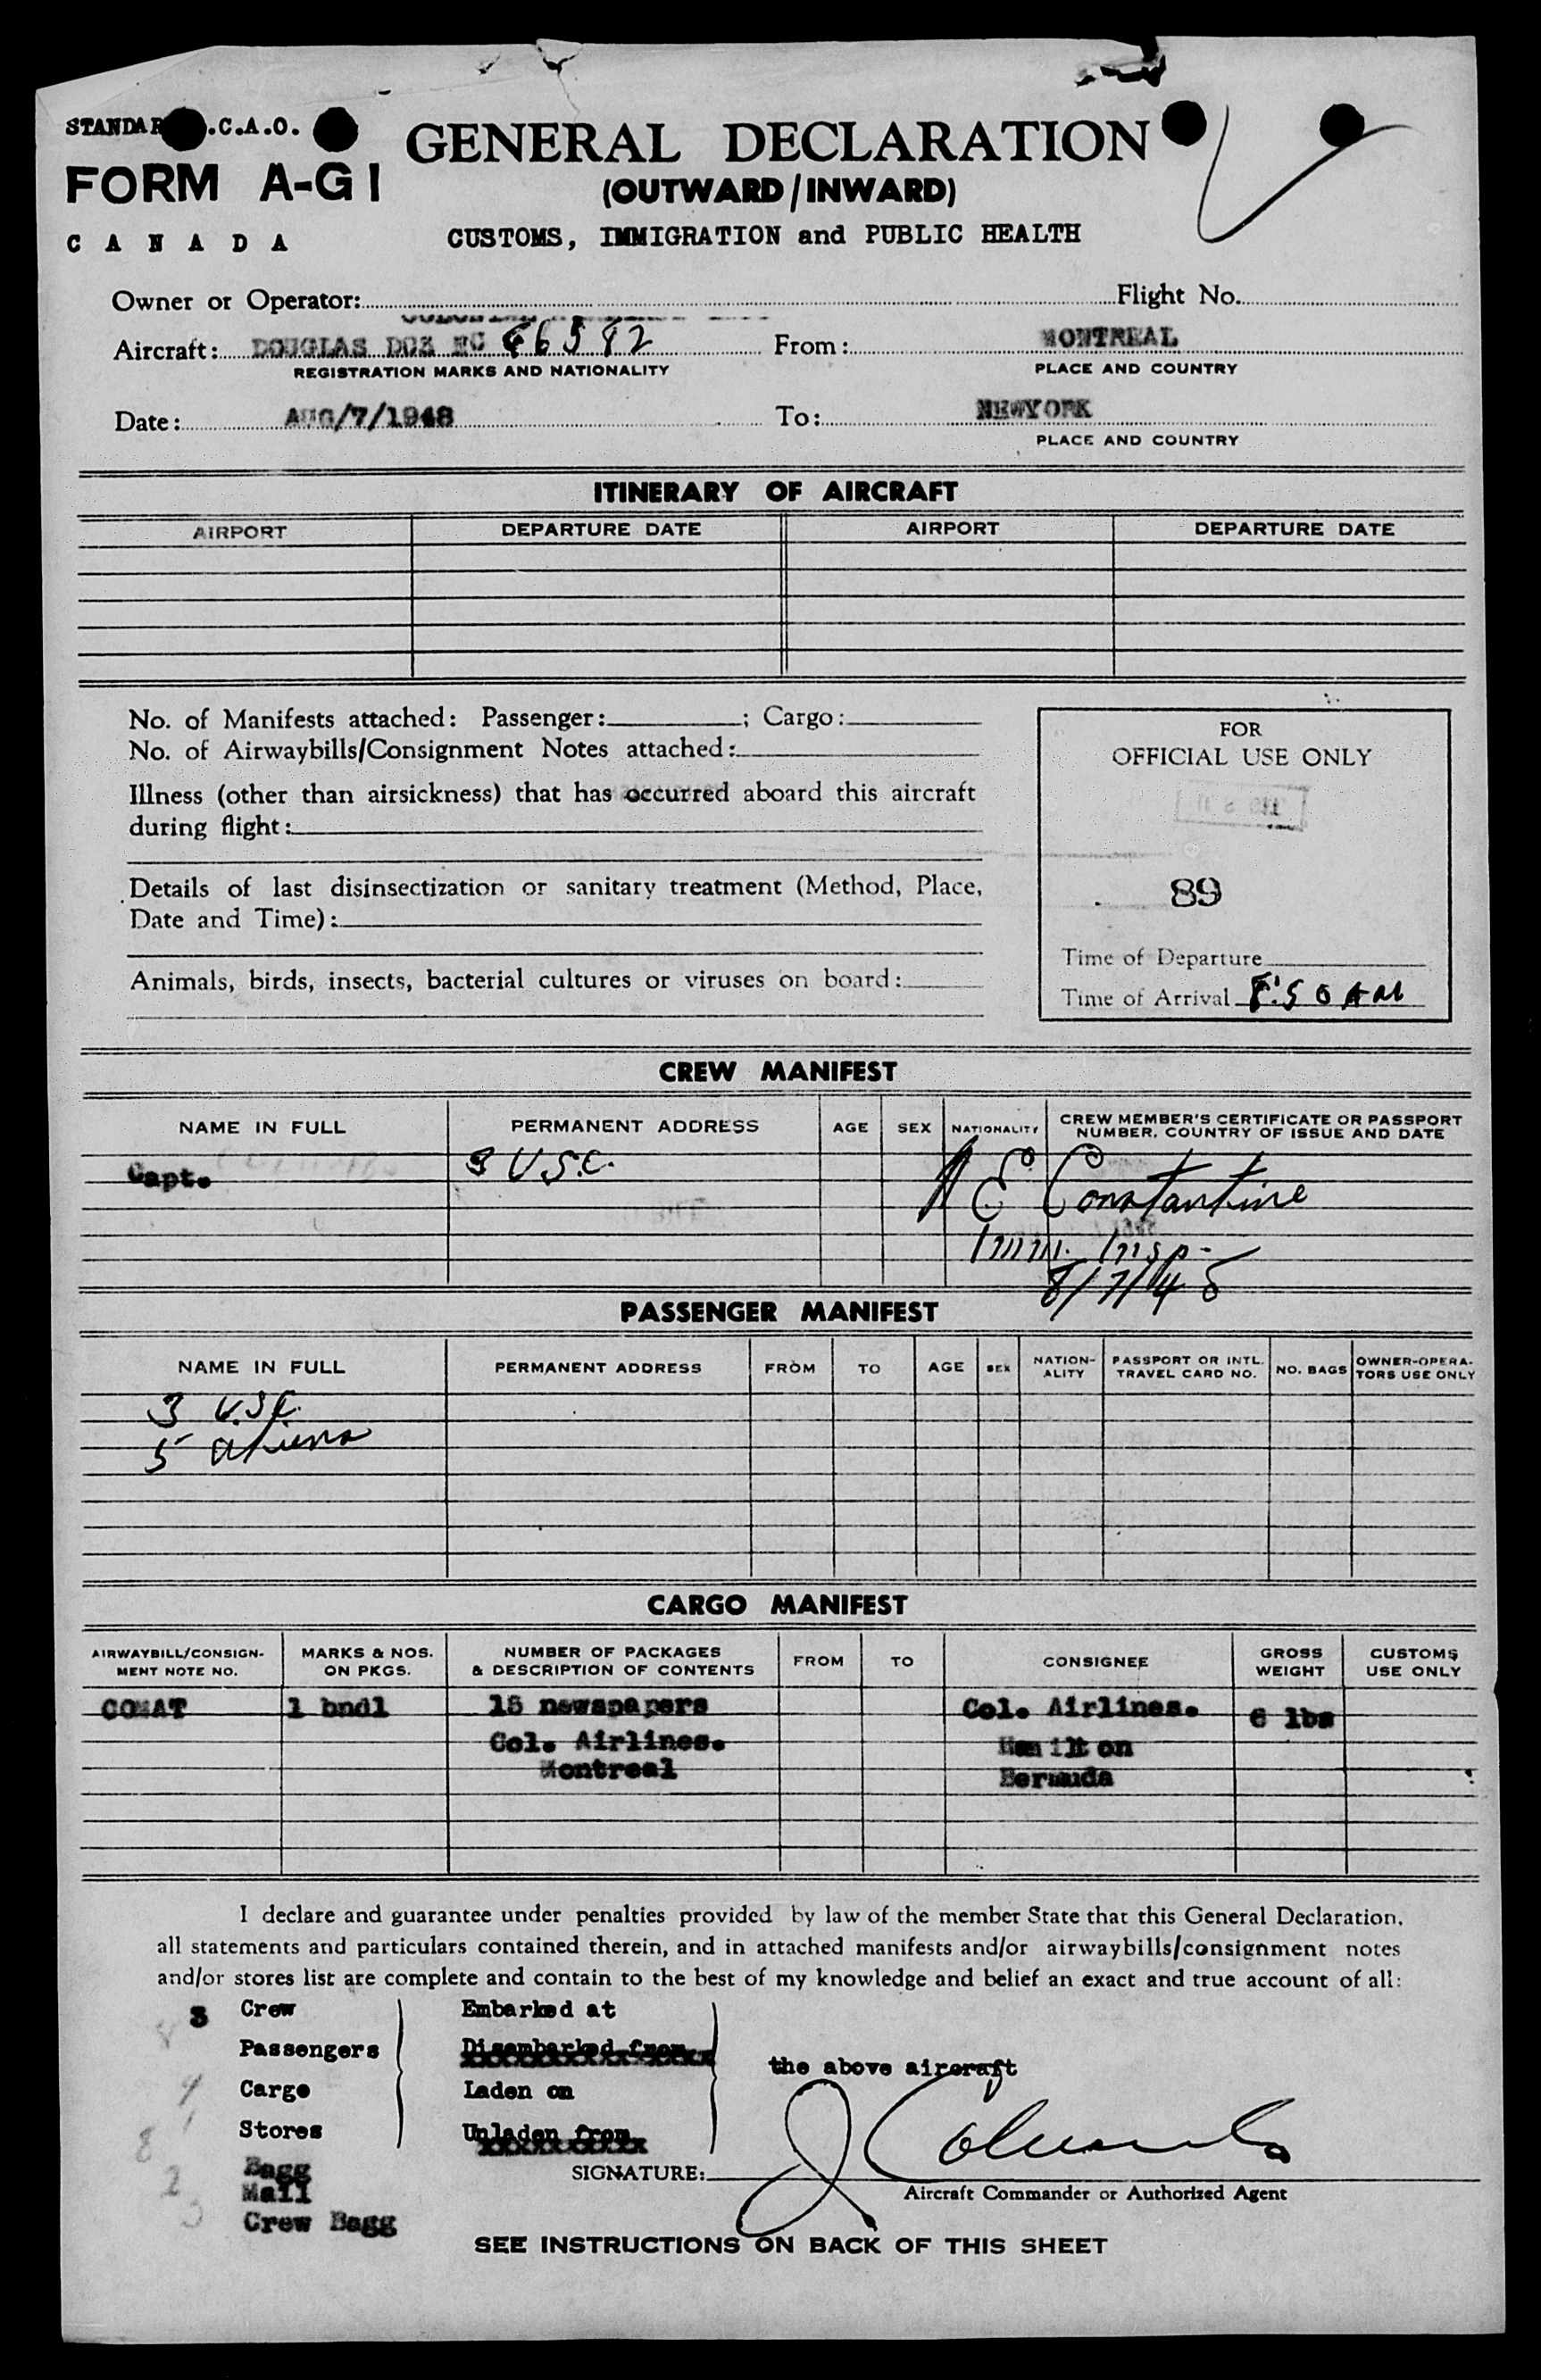 STANDAR .C.A.O.
FORM A-G1
C A N A D A
GENERAL DECLARATION
(OUTWARD/INWARD)
CUSTOMS, IMMIGRATION and PUBLIC HEALTH
Owner or Operator: Flight No.
Aircraft: DOUGLAS DC3 NC 86582 From: MONTREAL
REGISTRATION MARKS AND NATIONALITY PLACE AND COUNTRY
Date: AUG/7/1948 To: NEWYORK
PLACE AND COUNTRY
ITINERARY OF AIRCRAFT
AIRPORT DEPARTURE DATE AIRPORT DEPARTURE DATE
No. of Manifests attached: Passenger: ; Cargo:
No. of Airwaybills/Consignment Notes attached:
Illness (other than airsickness) that has occurred aboard this aircraft
during flight:
Details of last disinsectization or sanitary treatment (Method, Place,
Date and Time):
Animals, birds, insects, bacterial cultures or viruses on board:
FOR
OFFICIAL USE ONLY
89
Time of Departure
Time of Arrival 8:50 AM
CREW MANIFEST
NAME IN FULL PERMANENT ADDRESS AGE SEX NATIONALITY CREW MEMBER'S CERTIFICATE OR PASSPORT
NUMBER, COUNTRY OF ISSUE AND DATE
Capt. 3 U.S.C.
A E Constantine
Imm. Insp.
8/7/48
PASSENGER MANIFEST
NAME IN FULL PERMANENT ADDRESS FROM TO AGE SEX NATION-
ALITY PASSPORT OR INTL.
TRAVEL CARD NO. NO. BAGS OWNER-OPERA-
TORS USE ONLY
3 U.S.C.
5 aliens
CARGO MANIFEST
AIRWAYBILL/CONSIGN-
MENT NOTE NO. MARKS & NOS.
ON PKGS. NUMBER OF PACKAGES
& DESCRIPTION OF CONTENTS FROM TO CONSIGNEE GROSS
WEIGHT CUSTOMS
USE ONLY
COMAT 1 bndl 15 newspapers Col. Airlines. 6 lbs
Col. Airlines. Hamilton
Montreal Bermuda
I declare and guarantee under penalties provided by law of the member State that this General Declaration,
all statements and particulars contained therein, and in attached manifests and/or airwaybills/consignment notes
and/or stores list are complete and contain to the best of my knowledge and belief an exact and true account of all:
3 Crew Embarked at
8 Passengers Disembarked from
the above aircraft
Cargo Laden on
1 Stores Unladen from
8 Bagg
2 Mail
3 Crew Bagg
SIGNATURE:
Aircraft Commander or Authorized Agent
SEE INSTRUCTIONS ON BACK OF THIS SHEET